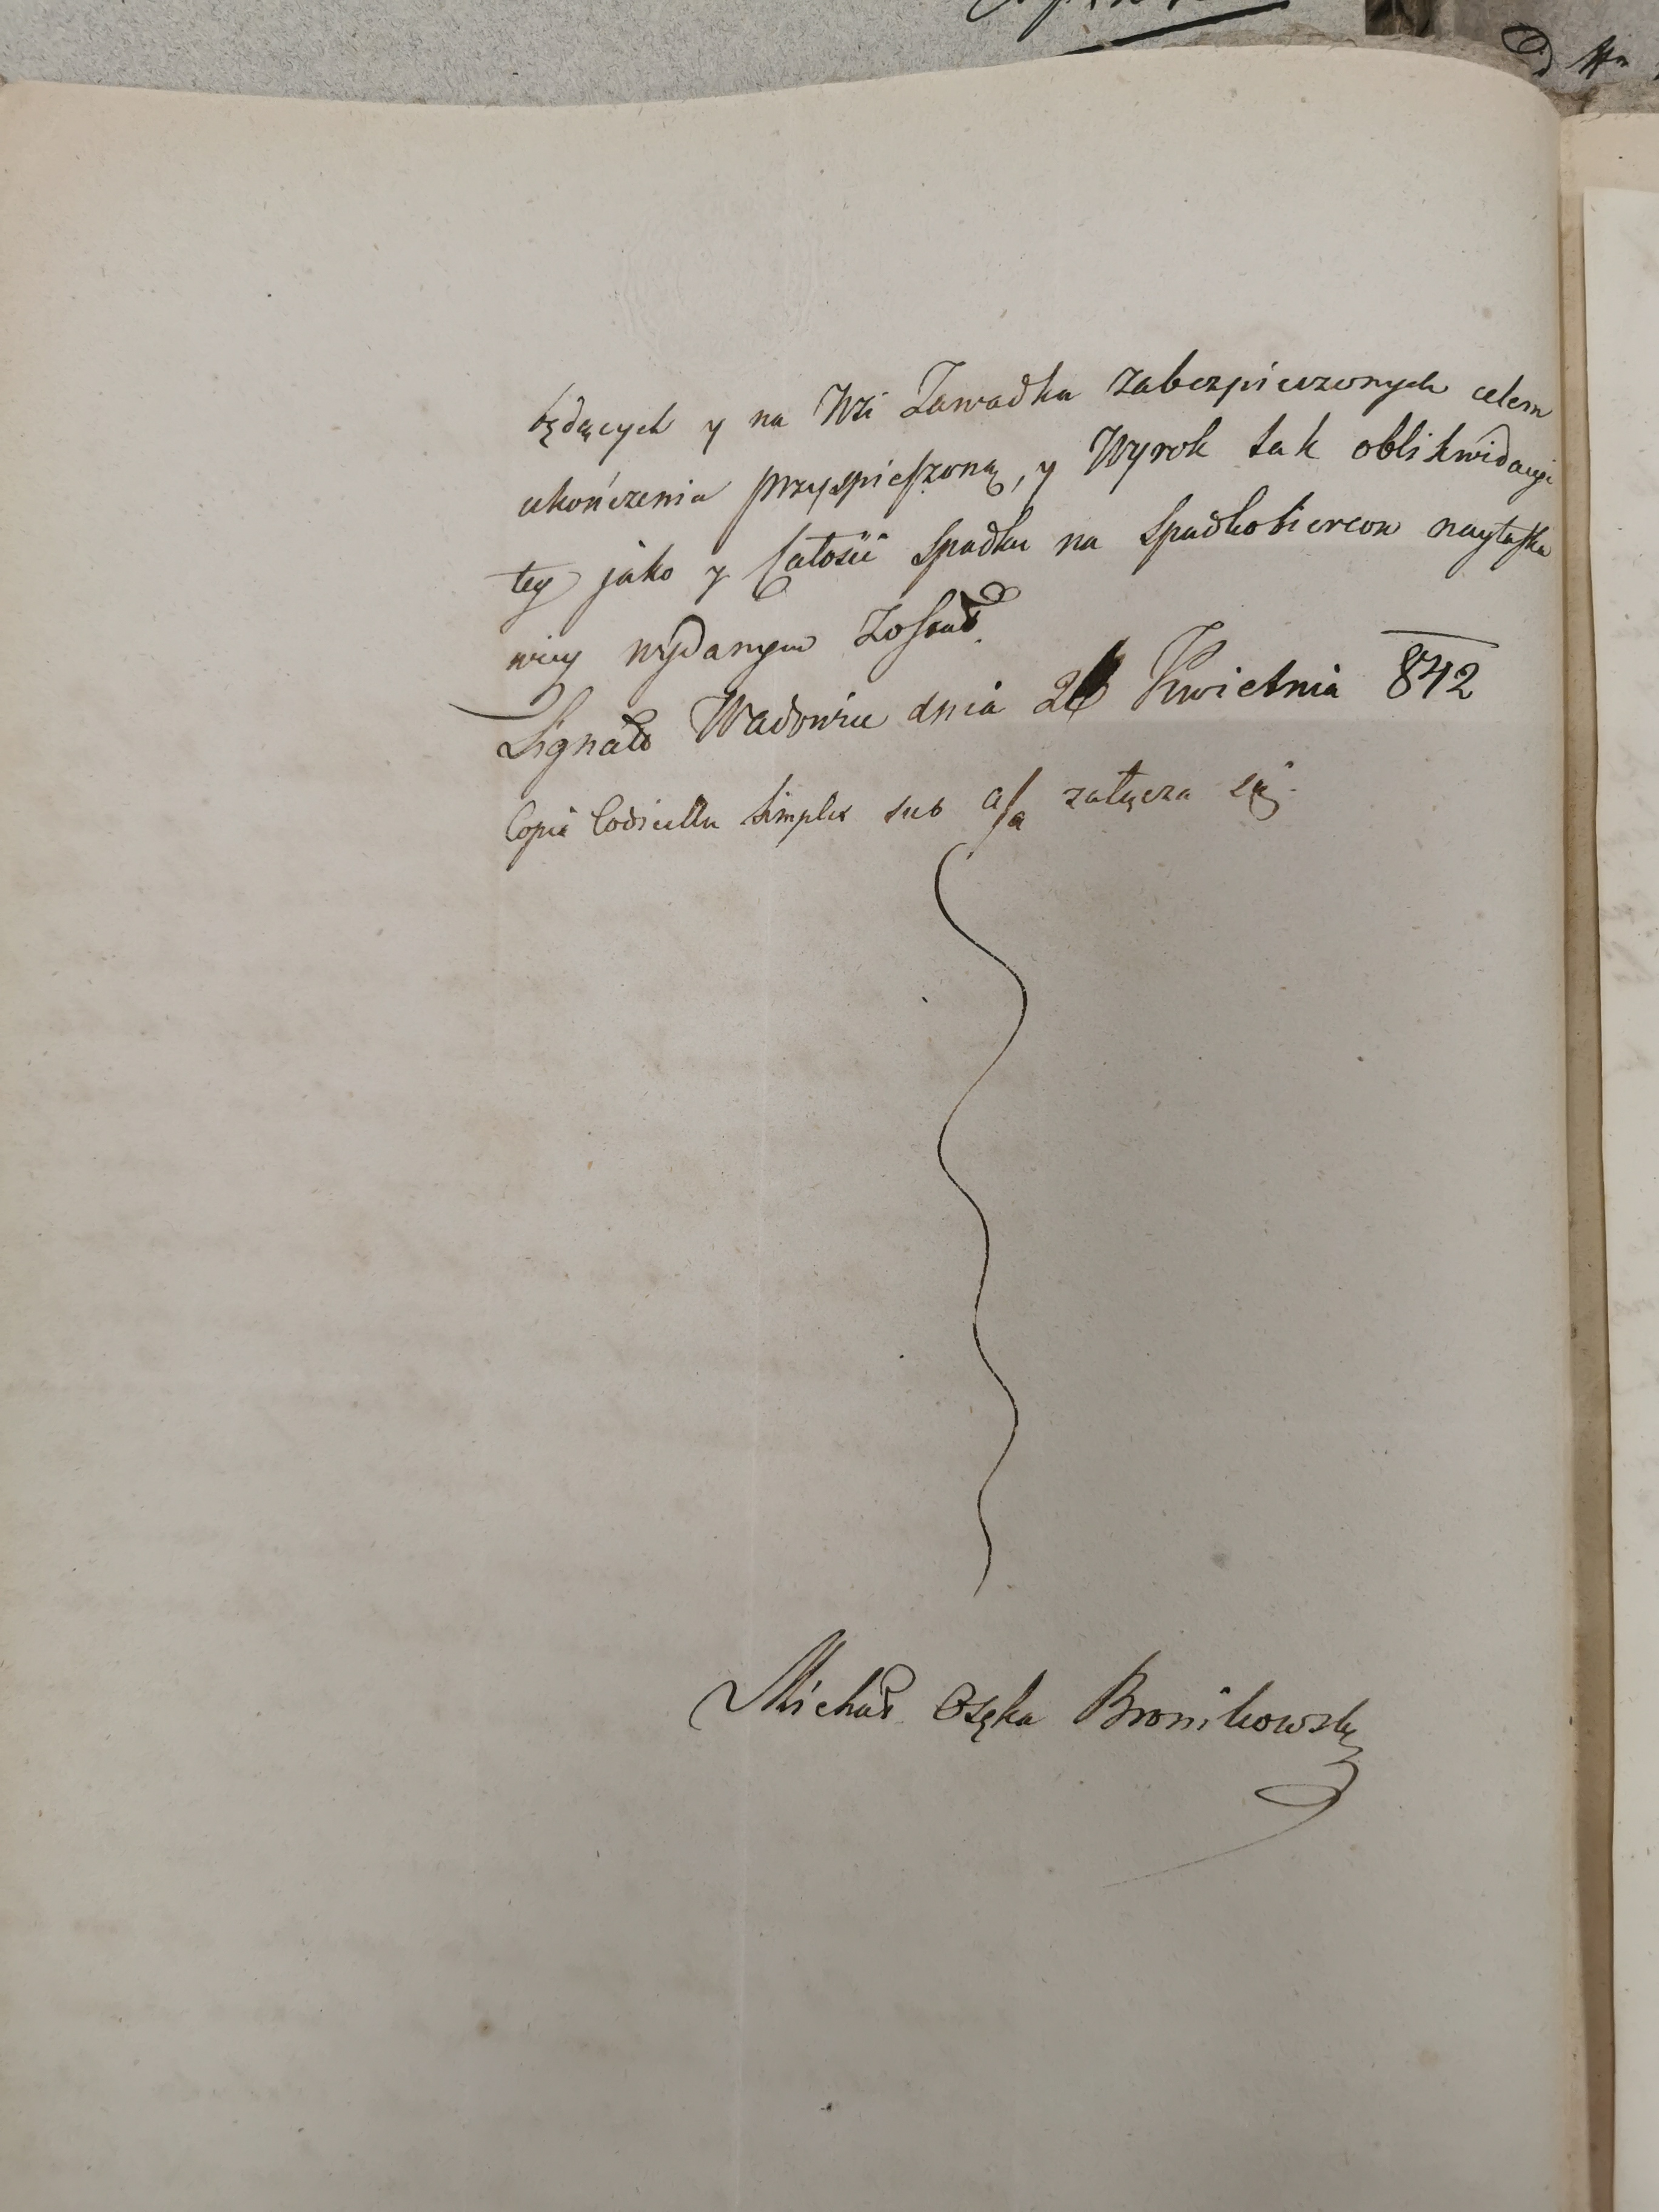 będących y na Wsi Zawadka zabezpieczonych celem
ukończenia przyspieszoną, y Wyrok tak oblikwidacyi
tey jako y Całości Spadku na Spadkobiercow nayłaska
wiey wydanym Został.
Signat Wadowice dnia Kwietnia 842
Copia Codicillu Simplex sub a/a załącza się.
Michał Osęka Bronikowski